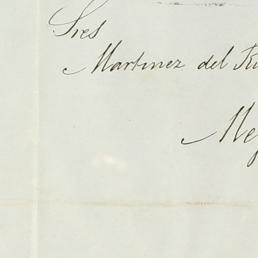 Sres
Martinez del Ri
Me